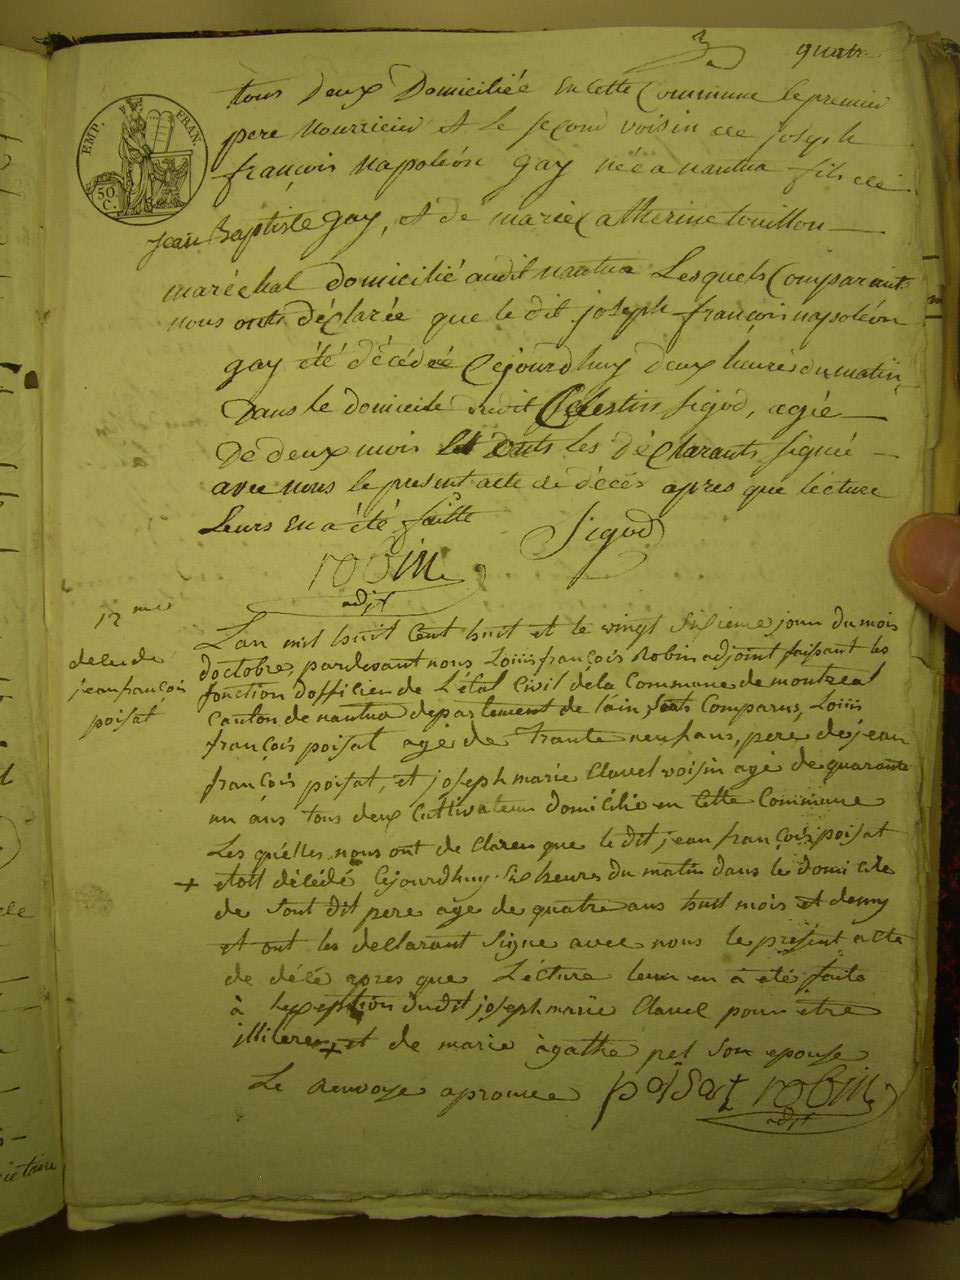 quatr
EMP. FRAN.
50 C.
tous deux Domiciliée en cette Commune le premier
pere nourricier et le second voisin de joseph
françois napoléon gay née a nantua fils de
jean Baptiste gay, et de marie Catherine touillon
maréchal domicilié audit nantua Lesquels Comparant
nous onts déclarée que le dit joseph françois napoléon
gay été décédé Cejourdhuy deux heures du matin,
Dans le domicile dudit Célestin Sigod, agée
De deux mois et onts les déclarants signée
avec nous le present acte de décès apres que lécture
Leurs en a été faitte
Sigod
robin
adjt
12me
decès de
jean françois
poisat
L'an mil huit Cent huit et le vingt sisieme jour du mois
doctobre, pardevant nous Loiiis françois Robin adjoint faisant les
fonction dofficier de L'état Civil de la Commune de montreal
Canton de nantua departement de lain, sont Comparus, Loiiis
françois poisat agé de trante neuf ans, pere de jean
françois poisat, et joseph marie Clavel voisin agé de quarante
un ans tous deux Cultivateur domicilié en Cette Commune
Les quélles nous ont de Claren que le dit jean françois poisat
+ étoit décédé Cejourdhuy Six heures du matin dans le domicile
de sont dit pere age de quatre ans huit mois et demy
et ont les declarant signe avec nous le présent acte
de décé apres que Lécture leur en à été faite
à lexception dudit joseph marie Clavel pour être
illiteré + et de marie àgathe pet son epouse
Le Renvoye aprouvee poisat robin
adjt